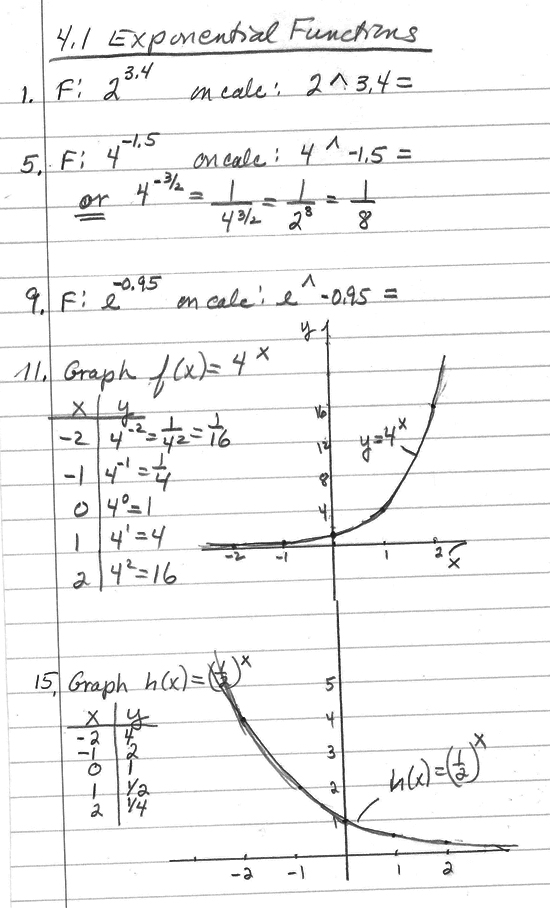 4.1 Exponential Functions
1. F: 2^3.4 on calc: 2 ^ 3.4 =
5. F: 4^-1.5 on calc: 4 ^ -1.5 =
or 4^-3/2 = 1/4^3/2 = 1/2^3 = 1/8
9. F: e^-0.95 on calc: e^ -0.95 =
11. Graph f(x) = 4^x
x | y
-2 | 4^-2 = 1/4^2 = 1/16
-1 | 4^-1 = 1/4
0 | 4^0 = 1
1 | 4^1 = 4
2 | 4^2 = 16
y
16
12
8
4
y=4^x
-2 -1 1 2 x
15. Graph h(x) = (1/2)^x
x | y
-2 | 4
-1 | 2
0 | 1
1 | 1/2
2 | 1/4
5
4
3
2
1
h(x) = (1/2)^x
-2 -1 1 2